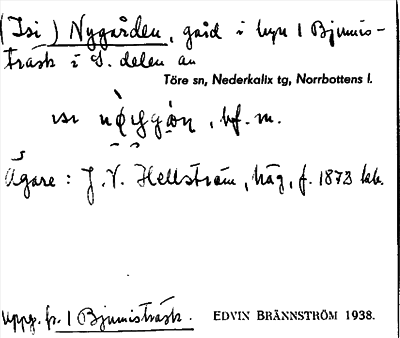 (Isi) Nygården, gård i byn 1 Bjumis-
träsk i S. delen av
Töre sn, Nederkalix tg, Norrbottens l.
bf. m.
Ägare: J. V. Hellström, häg, f. 1873 där.
Uppg. fr. 1 Bjumisträsk. EDVIN BRÄNNSTRÖM 1938.